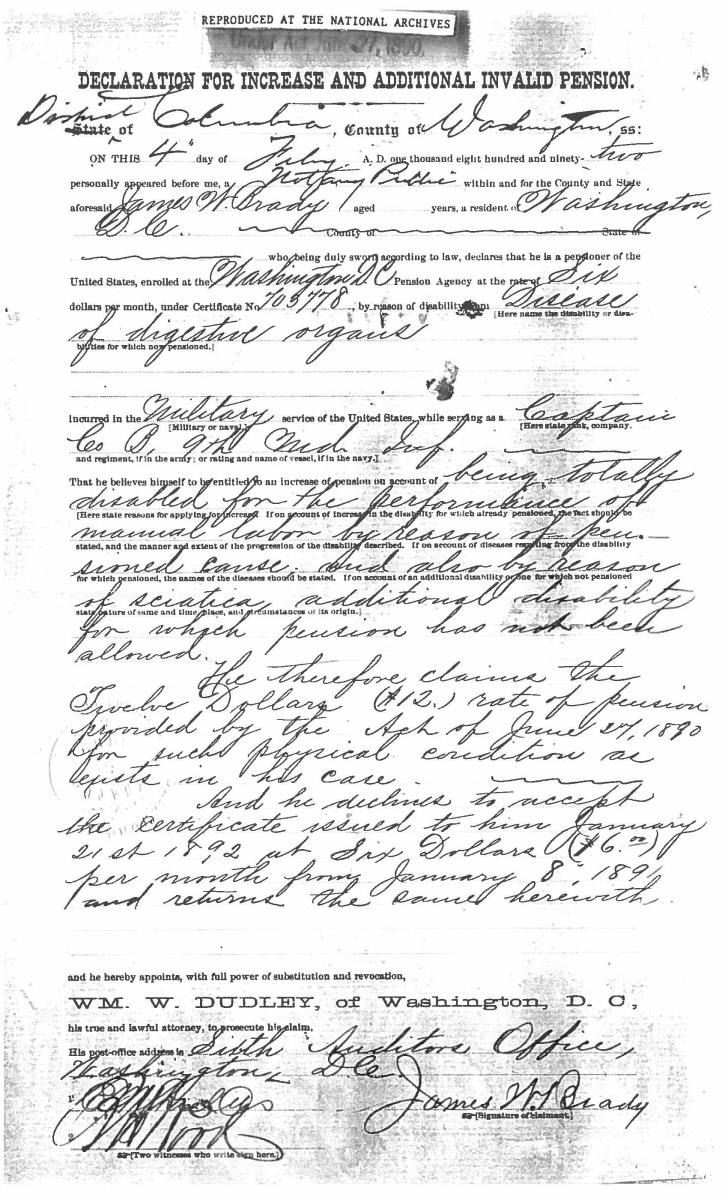 REPRODUCED AT THE NATIONAL ARCHIVES
Under Act June 27, 1890.
DECLARATION FOR INCREASE AND ADDITIONAL INVALID PENSION.
District
State of Columbia, County of Washington, ss:
ON THIS 4" day of Feby A. D. one thousand eight hundred and ninety-two
personally appeared before me, a Notary Public within and for the County and State
aforesaid James W. Brady aged years, a resident of Washington,
D.C. County of State of
who being duly sworn according to law, declares that he is a pensioner of the
United States, enrolled at the Washington DC Pension Agency at the rate of Six
dollars per month, under Certificate No 705778, by reason of disability from Disease
[Here name the disability or disa-
of digestive organs
bilities for which now pensioned.]
incurred in the Military service of the United States, while serving as a Captain
[Military or naval.] [Here state rank, company.
Co B, 9th Md. Inf.
and regiment, if in the army; or rating and name of vessel, if in the navy.]
That he believes himself to be entitled to an increase of pension on account of being totally
disabled for the performance of
[Here state reasons for applying for increase. If on account of increase in the disability for which already pensioned, the fact should be
manual labor by reason of pen-
stated, and the manner and extent of the progression of the disability described. If on account of diseases resulting from the disability
sioned cause. And also by reason
for which pensioned, the names of the diseases should be stated. If on account of an additional disability or one for which not pensioned
of sciatica, additional disability
state nature of same and time, place, and circumstances of its origin.]
for which pension has not been
allowed.
He therefore claims the
Twelve Dollars ($12.) rate of pension
provided by the Act of June 27, 1890
for such physical condition as
exists in his case.
And he declines to accept
the certificate issued to him January
21st 1892 at Six Dollars ($6.00)
per month from January 8", 1891
and returns the same herewith.
and he hereby appoints, with full power of substitution and revocation,
WM. W. DUDLEY, of Washington, D. C,
his true and lawful attorney, to prosecute his claim,
His post-office address is Sixth Auditors Office,
Washington, DC.
1.
James W. Brady
[Signature of claimant.]
2. Wood
[Two witnesses who write sign here.]